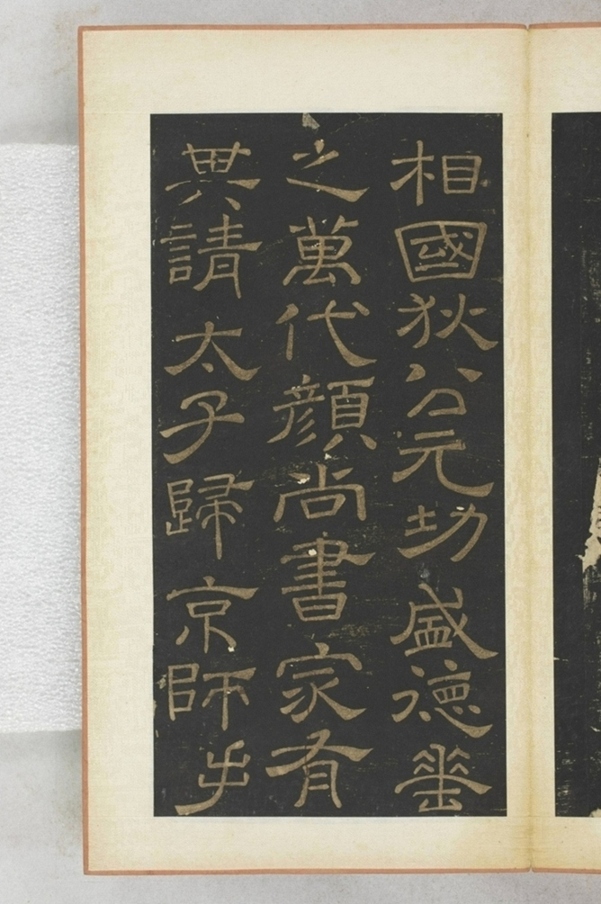 相國狄公元功盛德垂
之萬代顏尚書家有
其請太子歸京師手